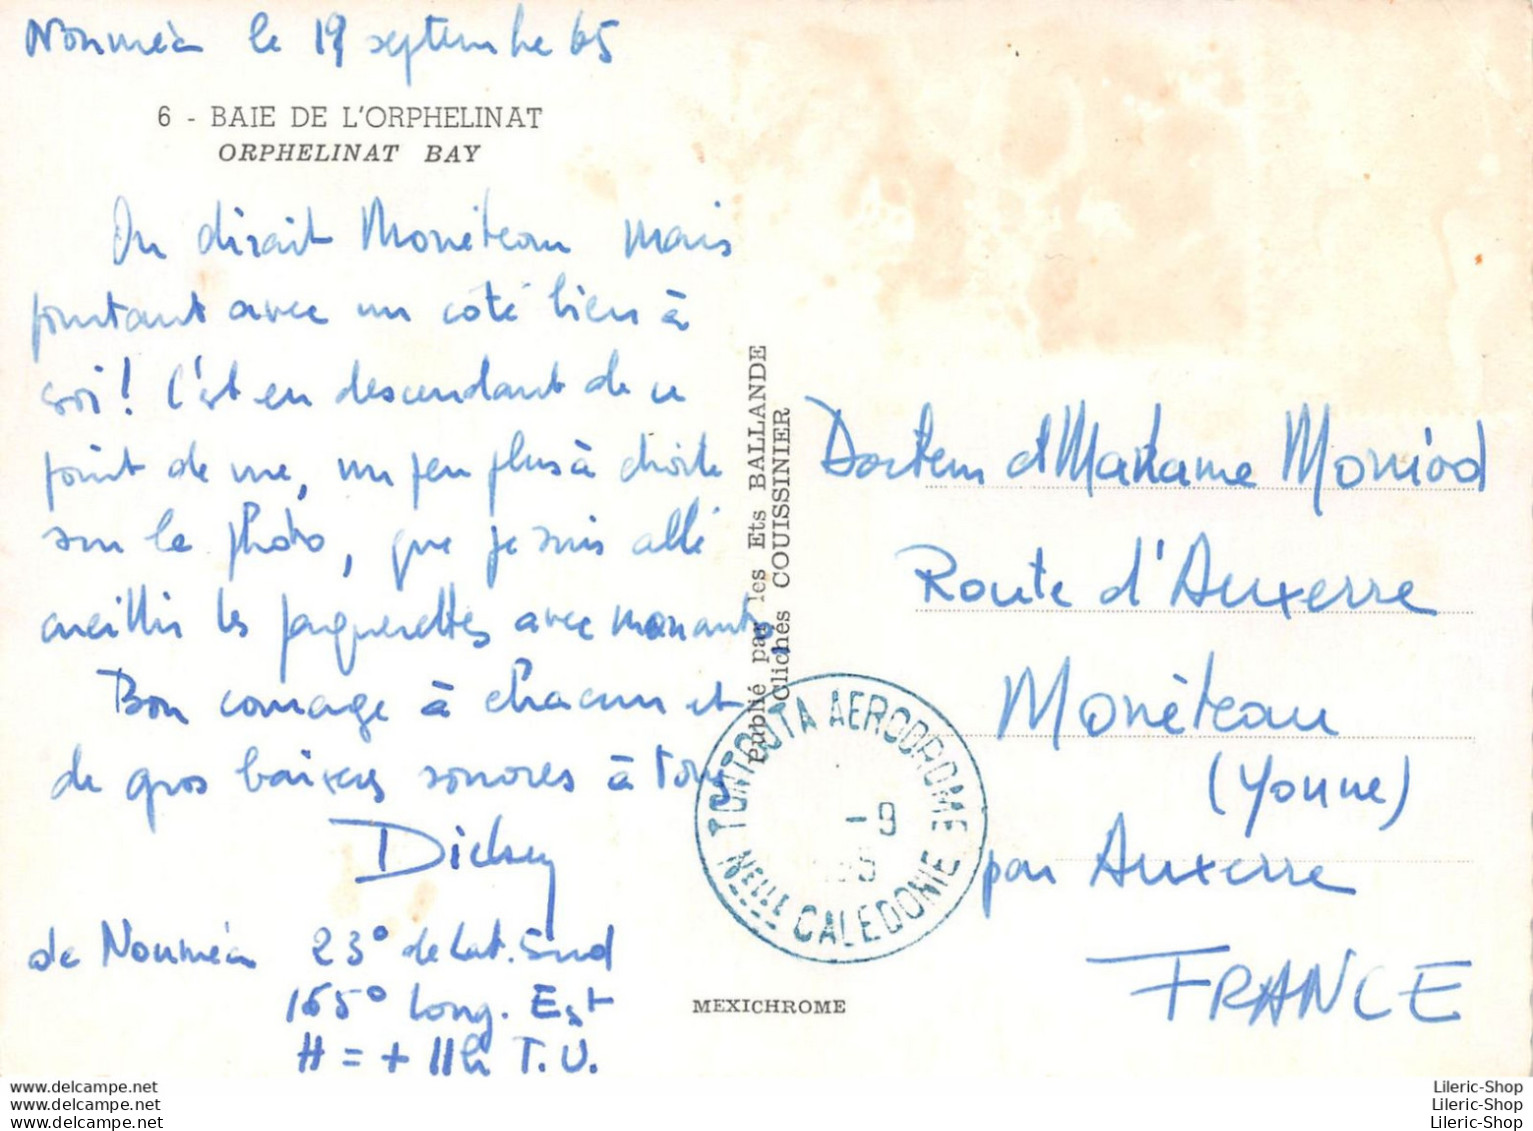 Nouméa le 19 septembre 65
6 - BAIE DE L'ORPHELINAT
ORPHELINAT BAY
On dirait Monéteau mais
pourtant avec un côté bien à
soi ! C'est en descendant de ce
point de vue, un peu plus à droite
sur la photo, que je suis allé
cueillir les paquerettes avec
Bon courage à chacun et
de gros baisers sonores à tous
de Nouméa 23° de Lat. Sud
165° Long. Est
H = + 11h T.U.
Publié par les Ets BALLANDE
Clichés COUISSINIER
TONTOUTA AERODROME
-9
NELLE CALEDONIE
MEXICHROME
Docteur et Madame Moniod
Route d'Auxerre
Monéteau
(Yonne)
par Auxerre
FRANCE
delcampe.net
delcampe.net
delcampe.net
Lileric-Shop
Lileric-Shop
Lileric-Shop